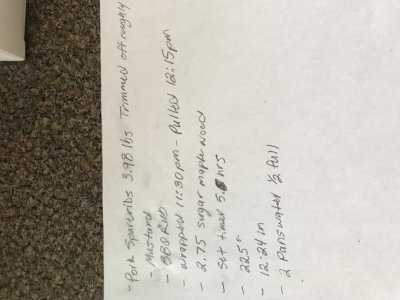 - Pork Spareribs 3.98 lbs Trimmed off roughly
- Mustard
- BBQ Rub
- wrapped 11:30pm - Pulled 12:15pm
- 2.75 sugar maple wood
- set timer 5. hrs
- 225°
- 12:24 in
- 2 Pans water 1/2 full